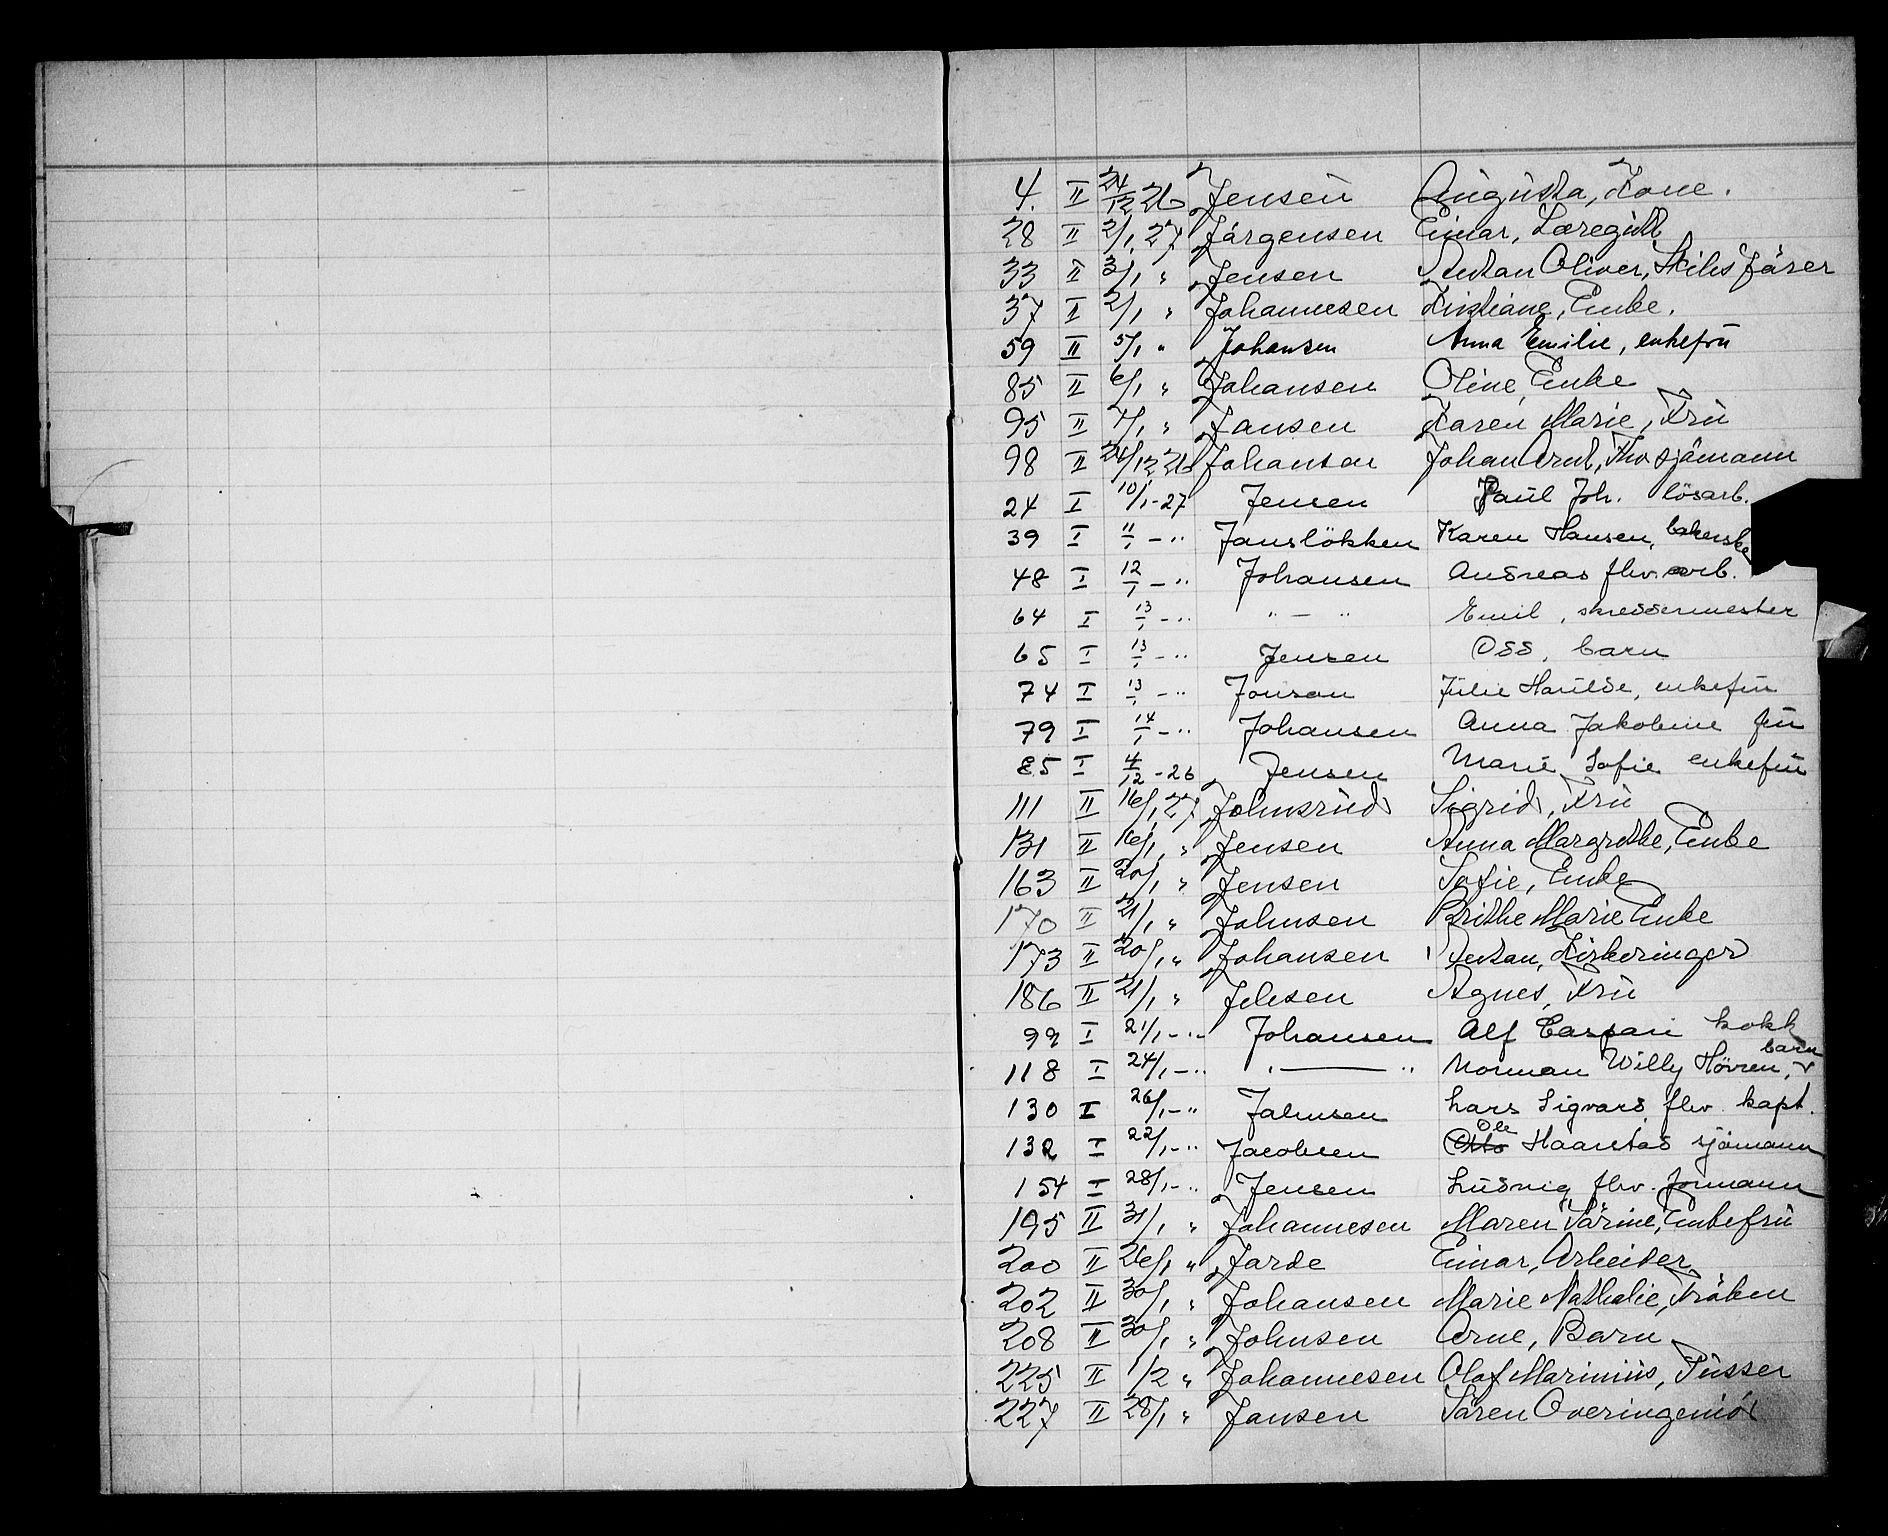 4. II 24/12 26 Jensen Augusta, Kone.
28 II 2/1 27 Jørgensen Einar, Læregutt
33 II 3/1 " Jensen Anton Oliver, Skibsförer
37 II 2/1 " Johannesen Kristiane, Enke.
59 II 5/1 " Johansen Anna Emilie, enkefrü
85 II 6/1 " Johansen Oline, Enke
95 II 7/1 " Jansen Karen Marie, Frü
98 II 24/12 26 Johansen Johan Arnt, Fhv sjömann
24 I 10/1-27 Jensen Paül Joh. lösarb.
39 I 11/1 - " Jansløkken Karen Hansen,
48 I 12/1 - " Johansen Andreas fhv. arb.
64 I 13/1 - " " - " Emil, skreddermester
65 I 13/1 - " Jensen Odd, barn
74 I 13/1 - " Jonson Jülie Haülde, enkefrü
79 I 14/1 - " Johansen Anna Jakobine frü
85 I 4/12 - 26 Jensen Marie Sofie enkefrü
111 II 16/1 27 Johnsrüd Sigrid, Frü
131 II 16/1 " Jensen Anna Margrethe, Enke
163 II 20/1 " Jensen Sofie, Enke
170 II 21/1 " Johnsen Brithe Marie Enke
173 II 20/1 " Johansen Anton, Kirkeringer
186 II 21/1 " Jebsen Agnes, Frü
99 I 21/1 - " Johansen Alf Caspari kokk
118 I 24/1 - " " - " Norman Willy Hövren, barn
130 I 26/1 - " Jahnsen Lars Sigvard fhv. kapt.
132 I 22/1 - " Jacobsen Otto Ole Haarstad sjömann
154 I 28/1 - " Jensen Lüdvig fhv. formann
195 II 31/1 " Johannesen Maren Sörine, Enkefrü
200 II 26/1 " Jarde Einar, Arbeider
202 II 30/1 " Johansen Marie Nathalie, Fröken
208 II 30/1 " Johnsen Arne, Barn
225 II 1/2 " Johannesen Olaf Marinius, Püsser
227 II 28/1 " Jansen Sören Overingeniör